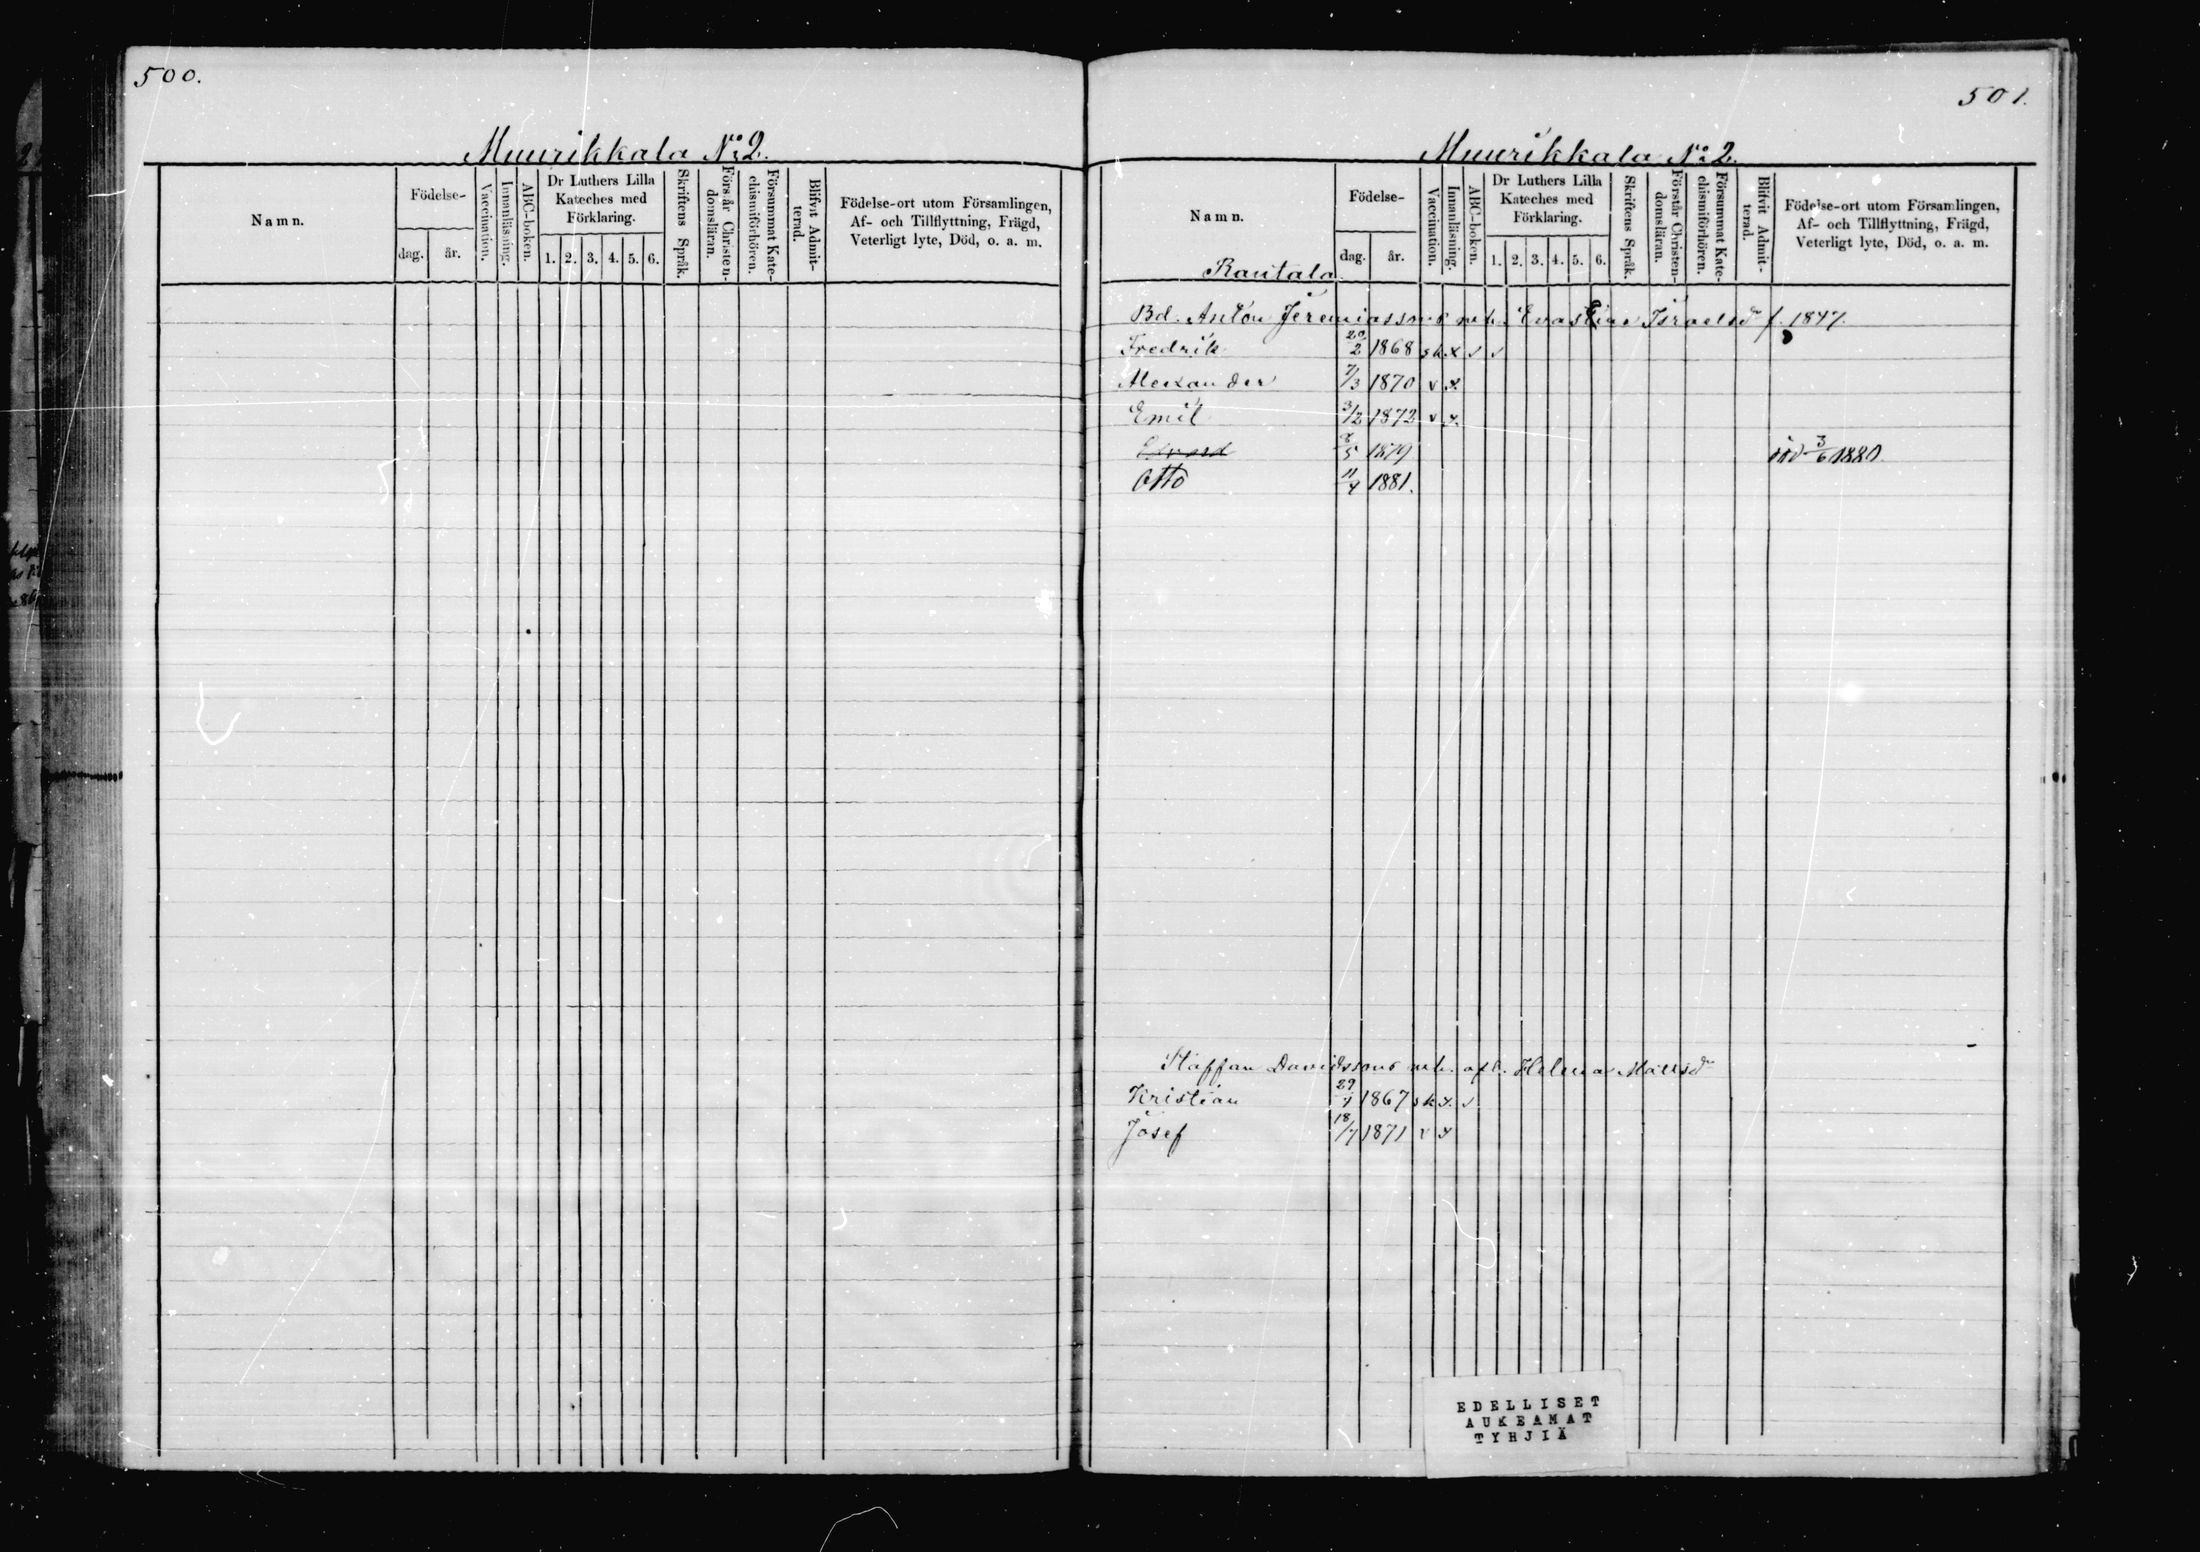 500.
Muurikkala No 2.
Namn.
Födelse-
dag.
år.
Vaccination.
Innanläsning.
ABC-boken.
Dr Luthers Lilla
Kateches med
Förklaring.
1. 2. 3. 4. 5. 6.
Skriftens Språk.
Förstår Christen-
domsläran.
Försummat Kate-
chismiförhören.
Blifvit Admit-
terad.
Födelse-ort utom Församlingen,
Af- och Tillflyttning, Frägd,
Veterligt lyte, Död, o. a. m.
501.
Muurikkala No 2.
Namn.
Födelse-
dag.
år.
Vaccination.
Innanläsning.
ABC-boken.
Dr Luthers Lilla
Kateches med
Förklaring.
1. 2. 3. 4. 5. 6.
Skriftens Språk.
Förstår Christen-
domsläran.
Försummat Kate-
chismiförhören.
Blifvit Admit-
terad.
Födelse-ort utom Församlingen,
Af- och Tillflyttning, Frägd,
Veterligt lyte, Död, o. a. m.
Rautala.
Bd. Anton Jeremiassons mh. Israelsdr f. 1847.
Fredrik 20/2 1868 sk x v v
Alexander 7/3 1870 v x
Emil 3/2 1872 v x
Edvard 8/5 1879 död 3/6 1880.
Otto 11/4 1881.
Staffan Davidssons mh. Helena Mattsdr
Kristian 29/1 1867 sk x v
Josef 18/7 1871 v x
EDELLISET
AUKEAMAT
TYHJIÄ